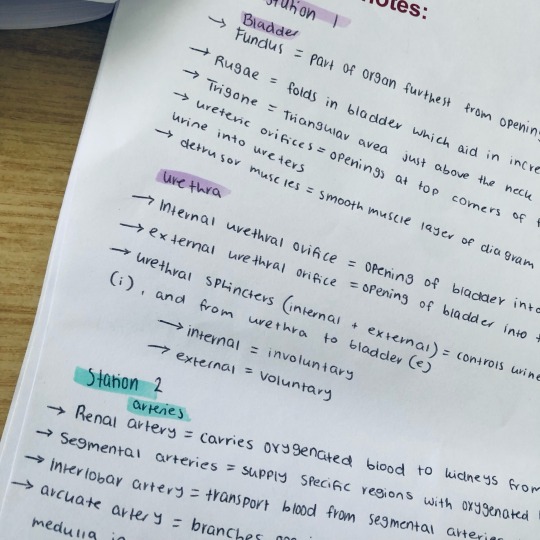 notes:
Station 1
Bladder
→ Fundus = part of organ furthest from opening
→ Rugae = folds in bladder which aid in
→ Trigone = Triangular area just above the neck
→ ureteric orifices = openings at top corners of
urine into ureters
→ detrusor muscles = smooth muscle layer of diagram
urethra
→ Internal urethral orifice = opening of bladder into
→ external urethral orifice = opening of bladder into
→ urethral sphincters (internal + external) = controls urine
(i), and from urethra to bladder (e)
→ internal = involuntary
→ external = voluntary
Station 2
arteries
→ Renal artery = carries oxygenated blood to kidneys from
→ Segmental arteries = supply specific regions with oxygenated
→ interlobar artery = transport blood from segmental arteries
→ arcuate artery = branches
medulla